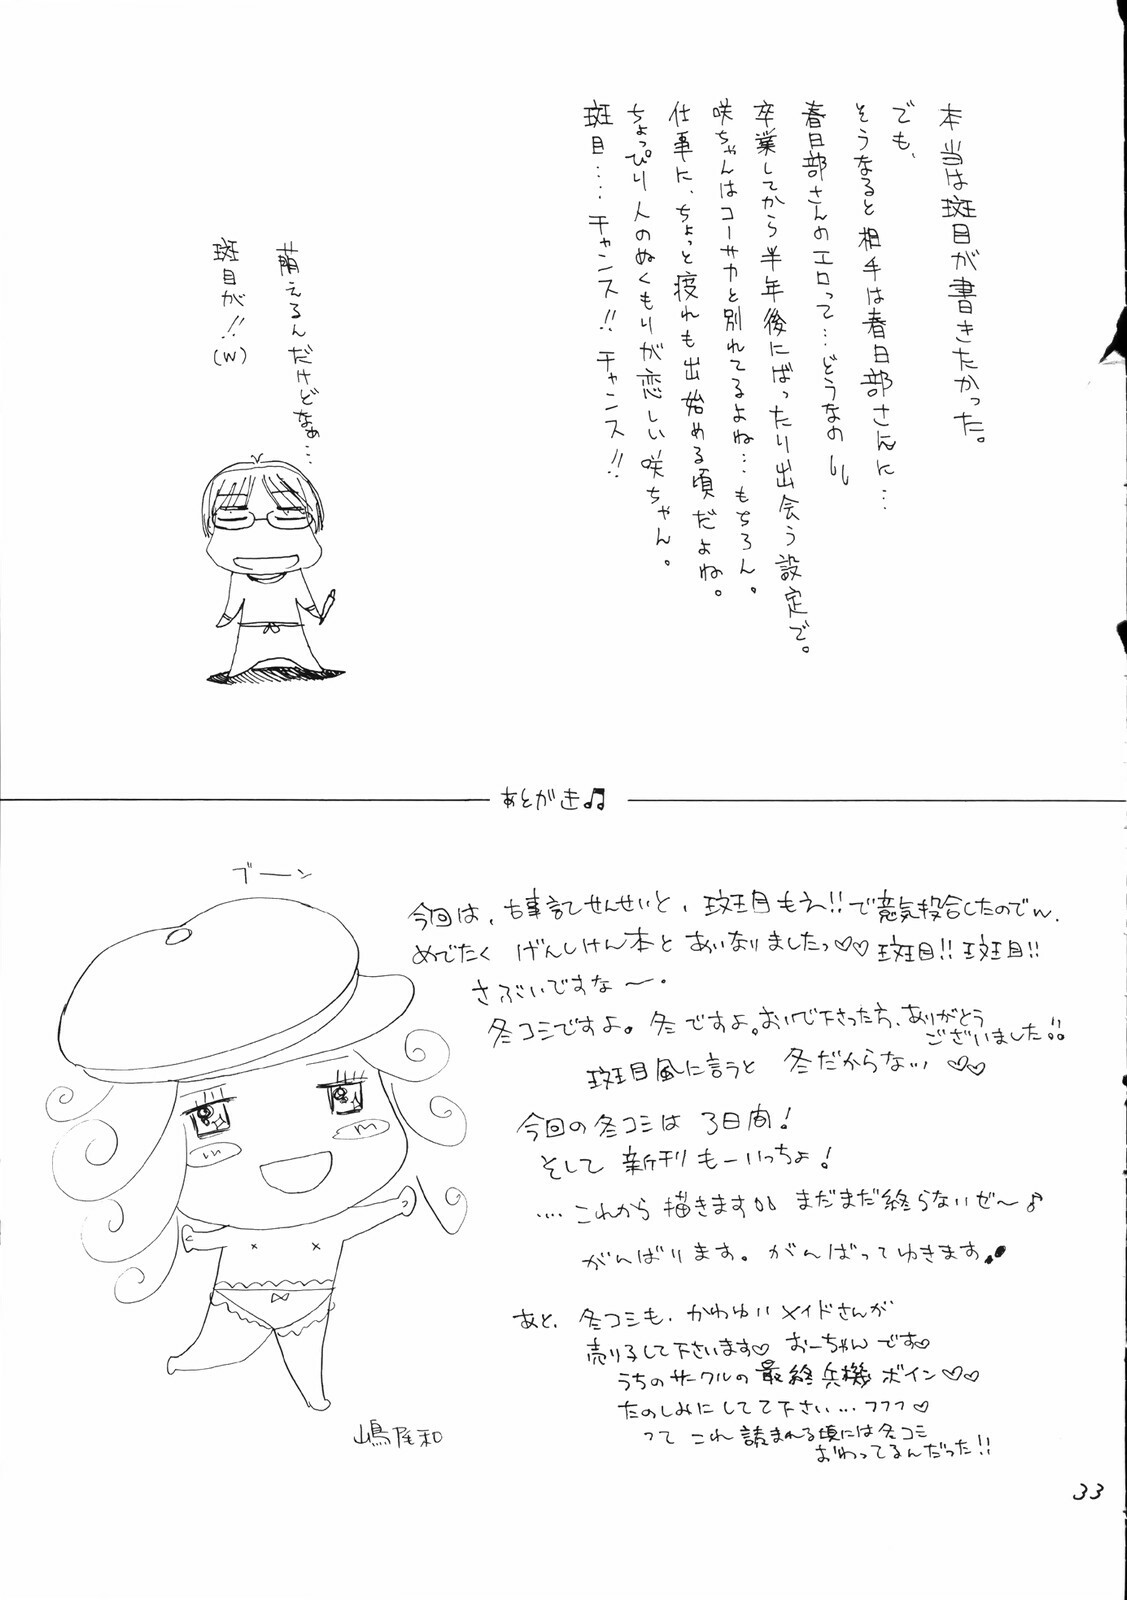 本当は斑目が書きたかった。
でも、
そうなると相手は春日部さんに…
春日部さんのエロって…どうなの
卒業してから半年後にばったり出会う設定で。
咲ちゃんはコーサカと別れてるよね…もちろん。
仕事に、ちょっと疲れも出始める頃だよね。
ちょっぴり人のぬくもりが恋しい咲ちゃん。
斑目…チャンス!!チャンス!!
萌えるんだけどなぁ…
斑目が!!(w)
あとがき♫
ブーン
今回は、古事記せんせいと、斑目もえ!!で意気投合したのでw.
めでたく げんしけん本と あいなりましたっ♡♡ 斑目!! 斑目!!
さぶいですな〜.
冬コミですよ。冬ですよ。おいで下さった方、ありがとう
ございました!!
斑目風に言うと 冬だからな… ♡♡
今回の冬コミは 3日間!
そして 新刊 もーいっちょ!
….これから 描きます まだまだ終らないぜ〜♪
がんばります。がんばってゆきます
あと、冬コミも、かわゆいメイドさんが
売り子して下さいます♡ おーちゃん です♡
うちのサークルの最終兵機 ボイン♡♡
たのしみにしてて下さい…フフフ♡
って これ読まれる頃には冬コミ
おわってるんだった!!
嶋尾和
33